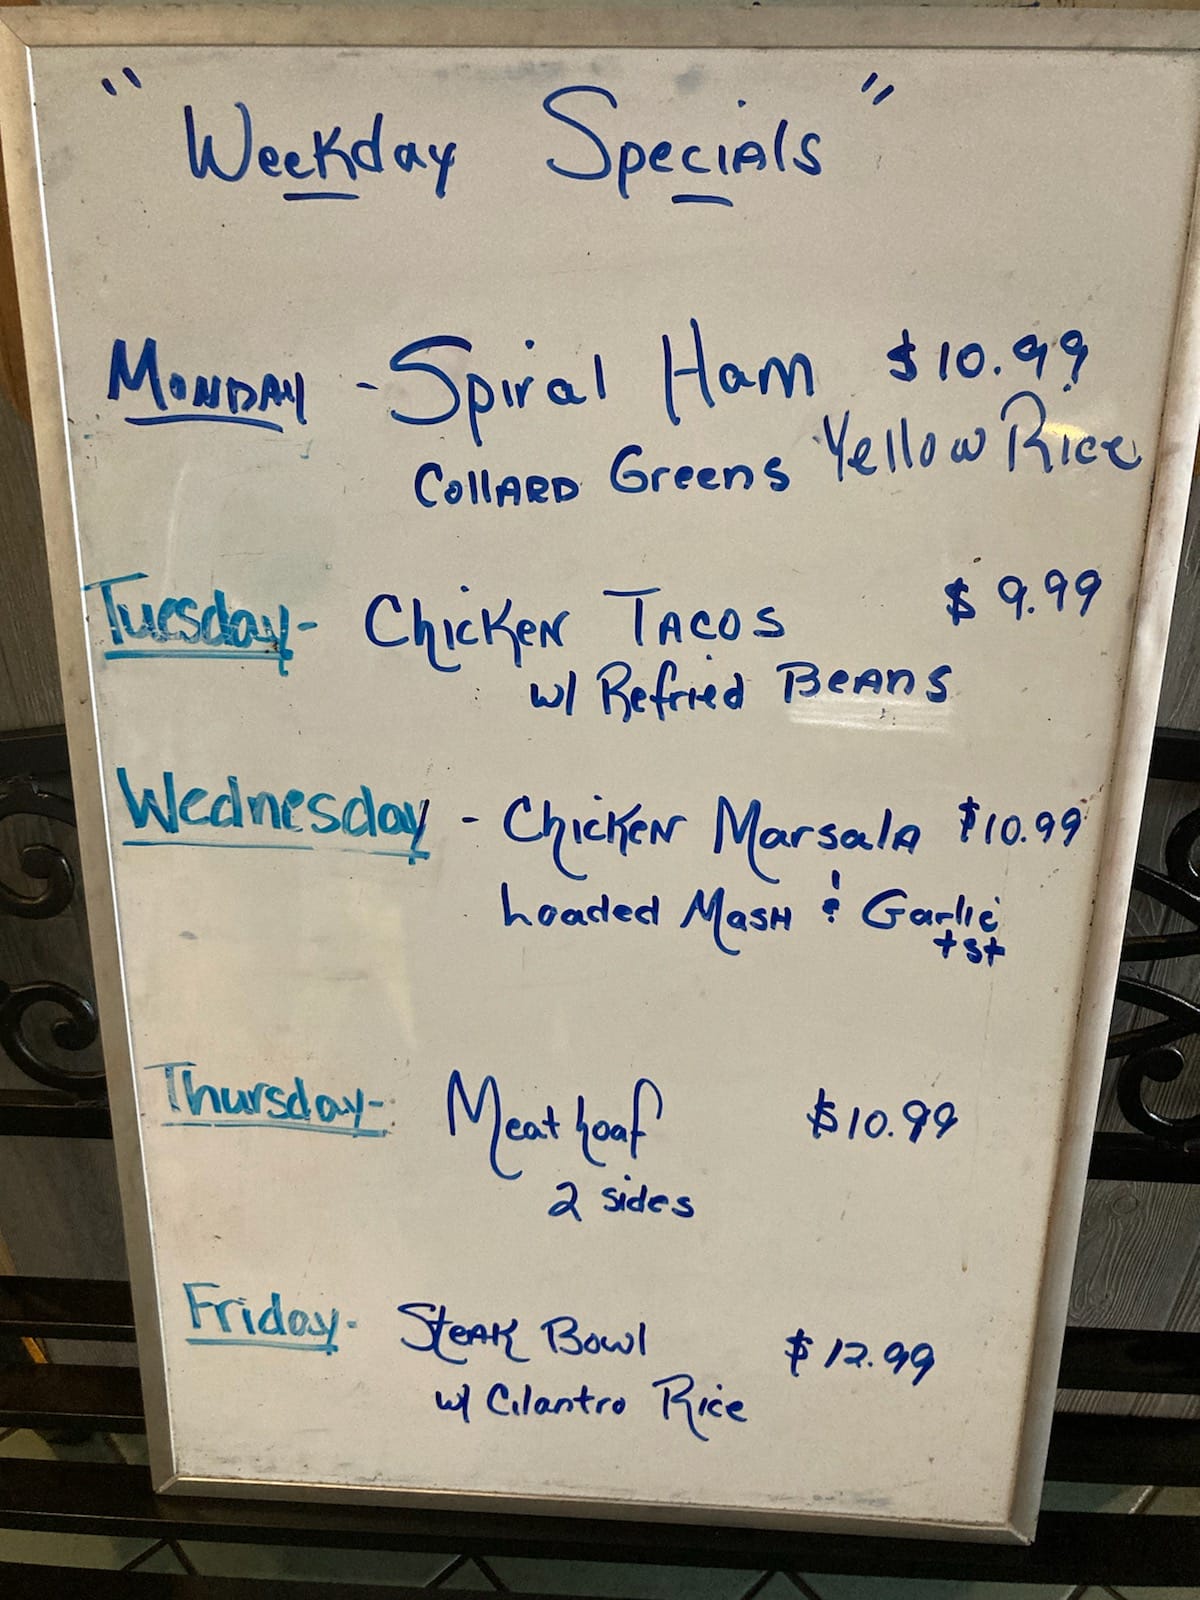 " Weekday Specials "
Monday - Spiral Ham $10.99
Collard Greens Yellow Rice
Tuesday - Chicken Tacos $9.99
w/ Refried Beans
Wednesday - Chicken Marsala $10.99
Loaded Mash & Garlic
tst
Thursday - Meat Loaf $10.99
2 sides
Friday - Steak Bowl $12.99
w/ Cilantro Rice